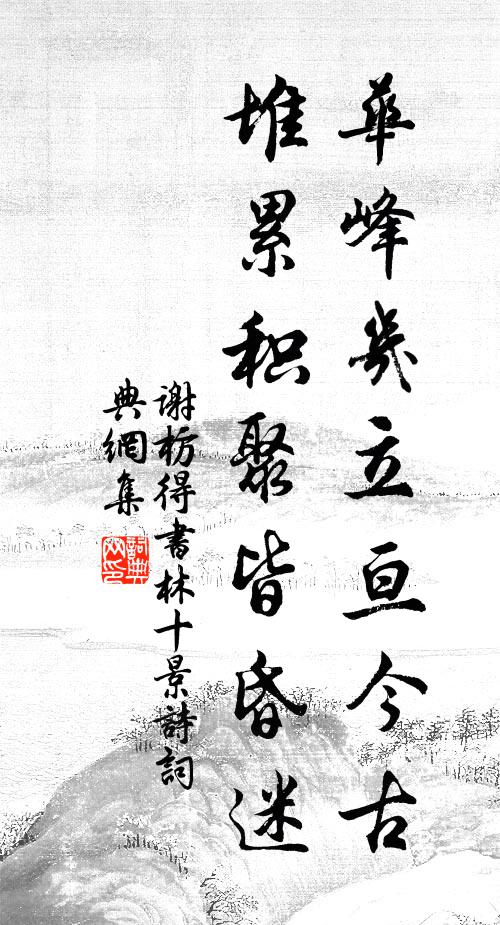 華峰幾立亘今古
堆累积聚皆昏迷
谢枋得書林十景詩詞
典網集
詞典
网印